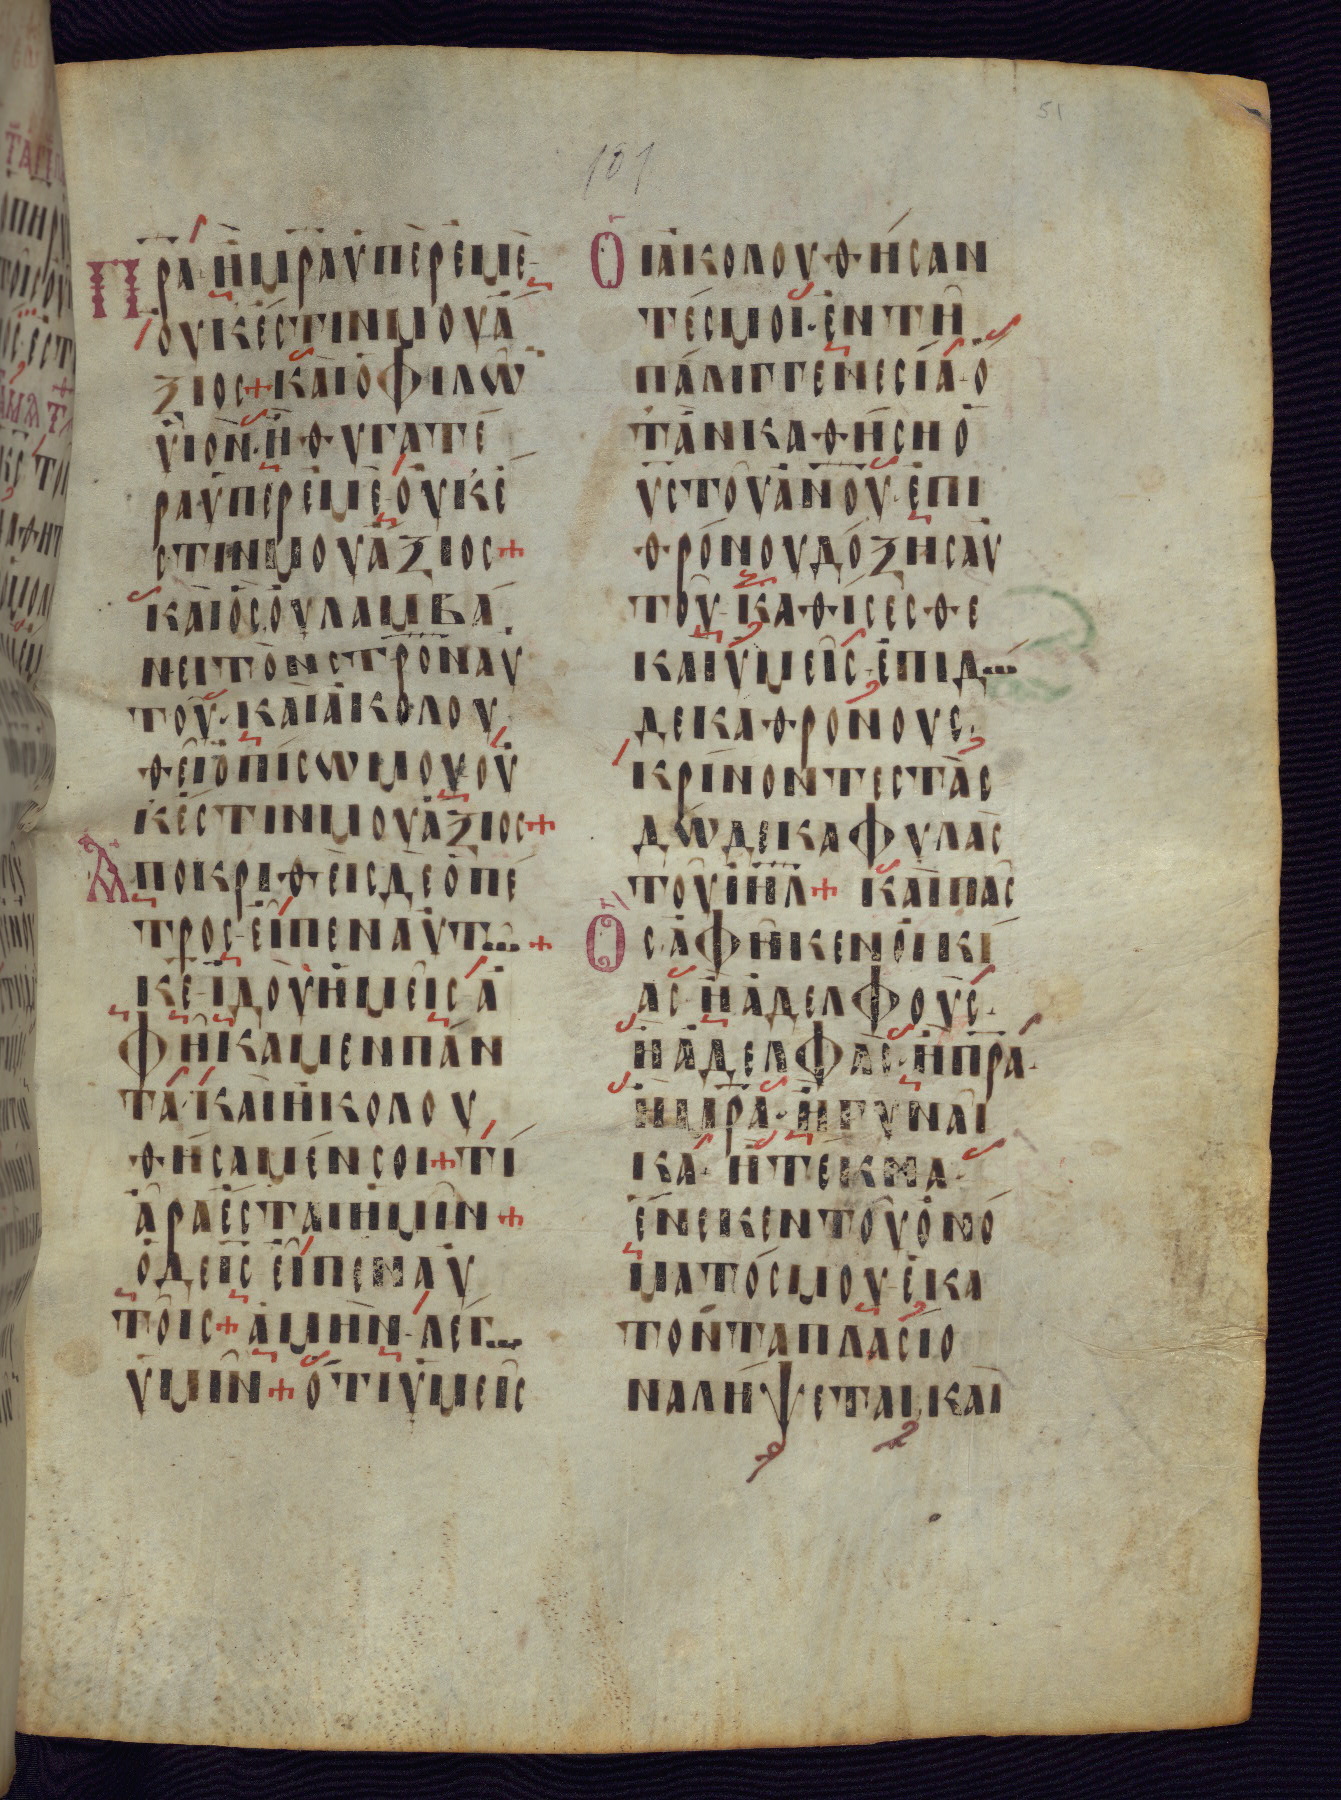 51
101
Πρα· ἢ μρα ὑπὲρ ἐμὲ·
οὐκ ἔστιν μου ἄ
ξιος + καὶ ὁ φιλῶ̄
υἱὸν· ἢ θυγατέ
ρα ὑπὲρ ἐμὲ· οὐκ ἔ
στιν μου ἄξιος +
καὶ ὃς οὐ λαμβά
νει τὸν στρον αὐ
τοῦ· καὶ ἀκολου
θεῖ ὀπίσω μου οὐ
κ ἔστιν μου ἄξιος +
Ἀποκριθεὶς δὲ ὁ πέ
τρος· εἶπεν αὐτ... +
κε· ἰδοὺ ἡμεῖς ἀ
φήκαμεν πάν
τα· καὶ ἠκολου
θήσαμέν σοι + τί
ἄρα ἔσται ἡμῖν +
ὁ δὲ ις εἶπεν αὐ
τοῖς + ἀμὴν· λέγ...
ὑμῖν + ὅτι ὑμεῖς
Οἱ ἀκολουθήσαν
τές μοι· ἐν τῇ
παλιγγενεσίᾳ· ὅ
ταν καθήσῃ ὁ
υς τοῦ ανου· ἐπὶ
θρόνου δόξης αὐ
τοῦ· καθίσεσθε
καὶ ὑμεῖς· ἐπὶ δ...
δεκα θρόνους·
κρίνοντες τὰς
δώδεκα φυλὰς
τοῦ ιηλ + καὶ πᾶς
Ὅς ἀφῆκεν οἰκί
ας· ἢ ἀδελφοὺς·
ἢ ἀδελφὰς· ἢ πρα·
ἢ μρα· ἢ γυναῖ
κα· ἢ τέκνα·
ἕνεκεν τοῦ ὀνό
ματός μου· ἑκα
τονταπλασίο
να λήψεται, καὶ